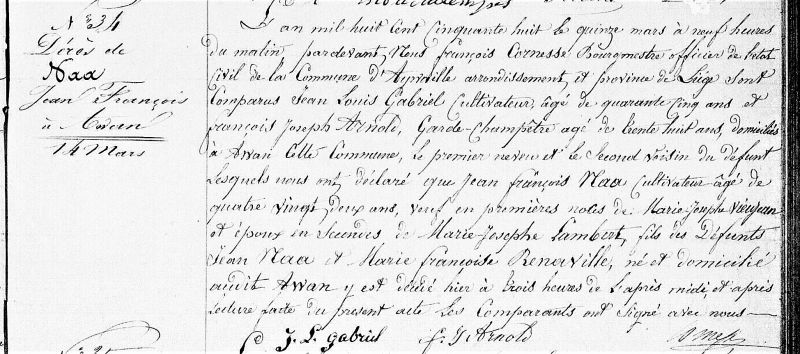 N° 34
Décès de
Naa
Jean François
à Awan
14 Mars
L'an mil huit cent cinquante huit le quinze mars à neuf heures
du matin, pardevant Nous François Cornesse Bourgmestre officier de l'état
Civil de la Commune d'Aywaille arrondissement et province de Liége sont
Comparus Jean Louis Gabriel Cultivateur, agé de quarante cinq ans et
françois Joseph Arnold, Garde-Champêtre agé de trente huit ans, domiciliés
à Awan Cette Commune, le premier neveu et le Second Voisin du défunt
Lesquels nous ont déclaré que Jean françois Naa Cultivateur âgé de
quatre vingt deux ans, veuf en premières noces de Marie-Josephe Vieujean
et époux en Secondes de Marie-Josephe Lambert, fils des Défunts
Jean Naa et Marie françoise Renarville, né et domicilié
audit Awan y est décédé hier à trois heures de l'après midi, et après
Lecture faite du présent acte Les Comparants ont Signé avec nous
J. L. Gabriel f. J Arnold